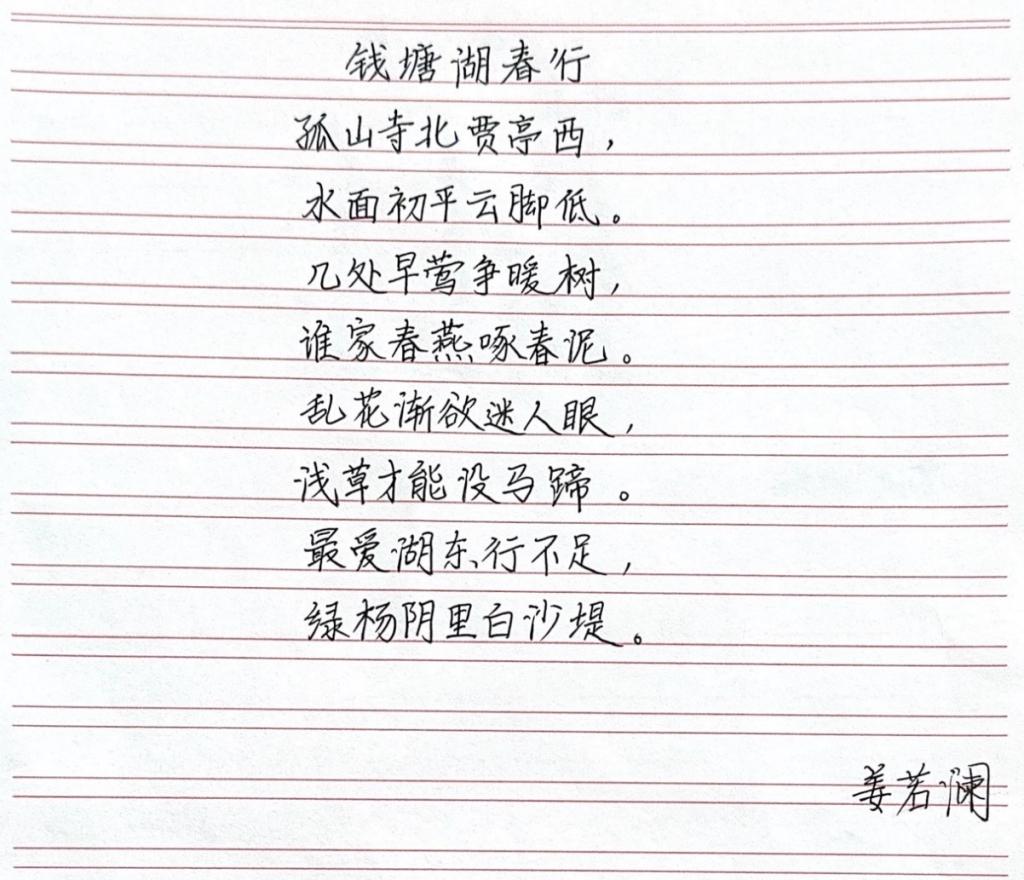 钱塘湖春行
孤山寺北贾亭西，
水面初平云脚低。
几处早莺争暖树，
谁家春燕啄春泥。
乱花渐欲迷人眼，
浅草才能没马蹄。
最爱湖东行不足，
绿杨阴里白沙堤。
姜若澜